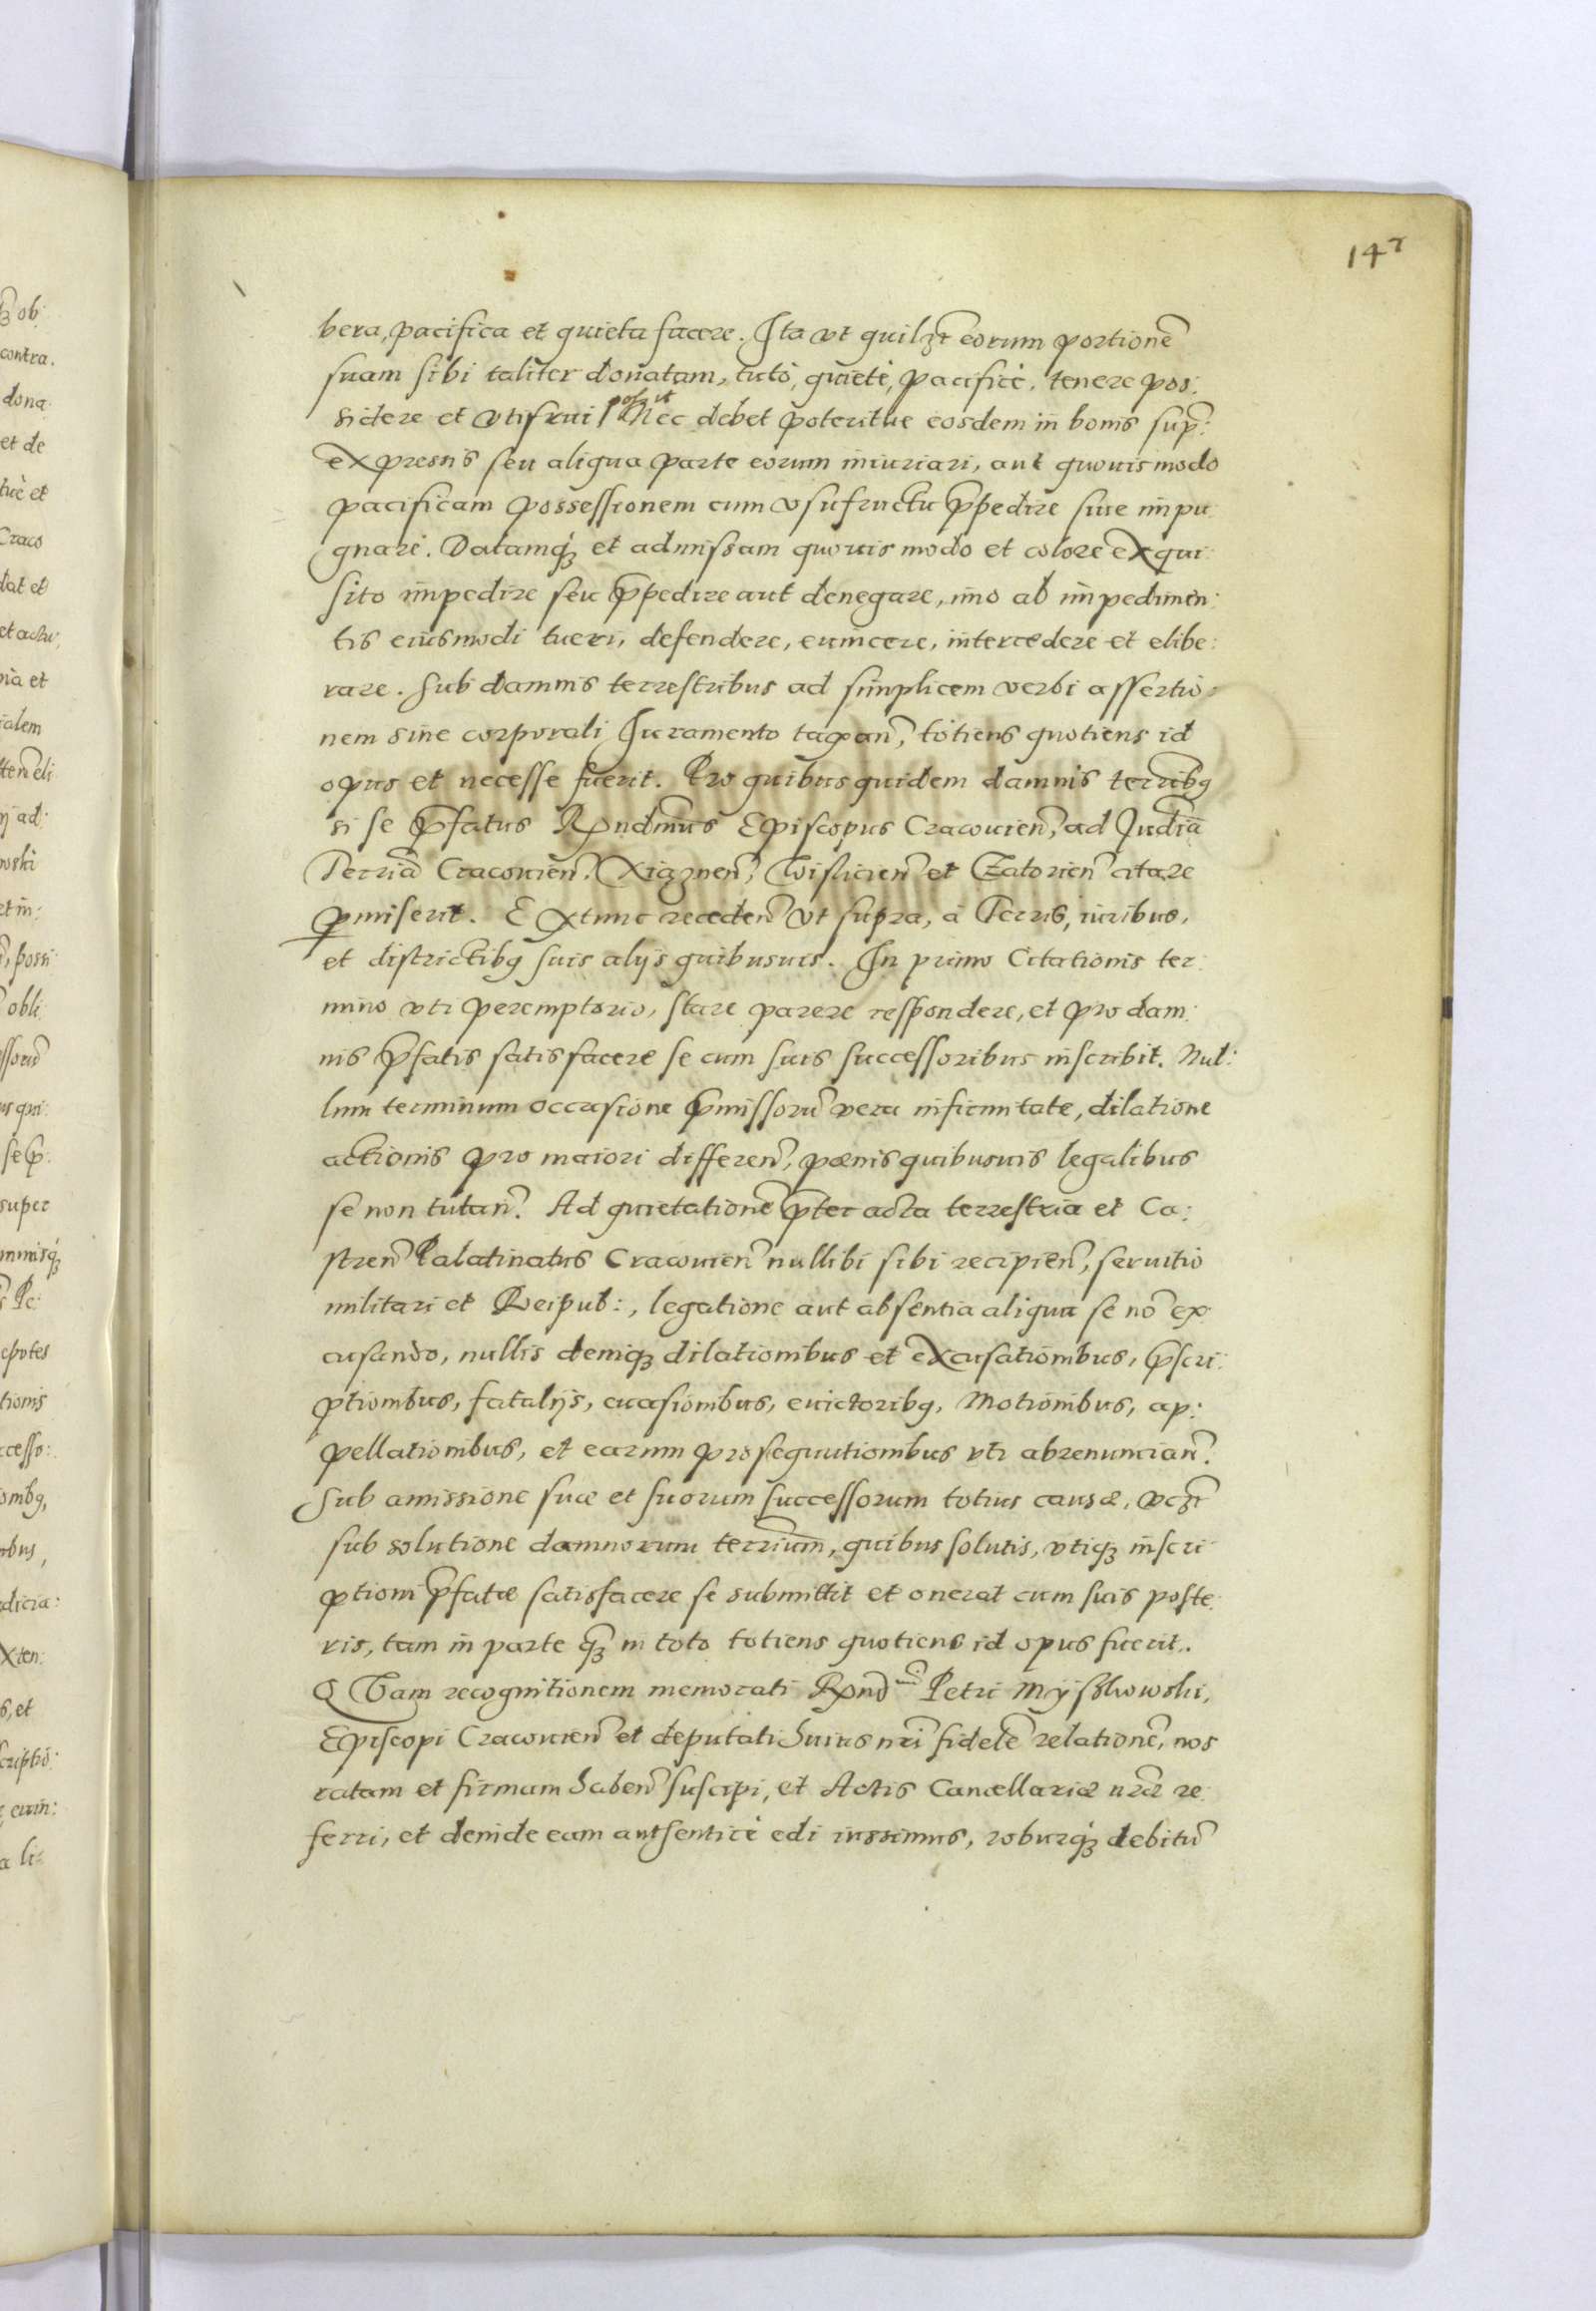 14r
bera, pacifica et quieta facere. Ita vt quilꝫt eorum portionẽ
suam sibi taliter donatam, tutò, quietè, pacificè, tenere pos:
sidere et vtifrui possit Nec debet poteritue eosdem in bonis sup:
expressis seu aliqua parte eorum iniuriari, aut quouis modo
pacificam possessionem cum vsufructu p̃pedire siue impu:
gnare. Datamq́ꝫ et admissam quouis modo et colore exqui:
sito impedire seu p̃pedire aut denegare, imo ab impedimen:
tis eiusmodi tueri, defendere, euincere, intercedere et elibe:
rare. Sub damnis terrestribus ad simplicem verbi assertio:
nem sine corporali Iuramento taxan̄, totiens quotiens id
opus et necesse fuerit. Pro quibus quidem damnis terribꝯ
si se p̃fatus Rẽndmus Episcopus Cracouien̄, ad Iudia
Terria Cracouien̄, Xiąznen̄, Wislicien̄ et Zatorien̄ citare
ꝑmiserit. Extunc receden̄ vt supra, à Terris, iuribus,
et districtibꝯ suis alijs quibusuis. In primo Citationis ter:
mino vti peremptorio, stare parere respondere, et pro dam:
nis p̃fatis satisfacere se cum suis successoribus inscribit. Nul:
lum terminum occasione p̃missorũ vera infirmitate, dilatione
actionis pro maiori differen̄, pœnis quibusuis legalibus
se non tutan̄. Ad quietationẽ p̃ter acta terrestria et Ca:
stren̄ Palatinatus Cracouien̄ nullibi sibi recipien̄, seruitio
militari et Reipub:, legatione aut absentia aliqua se nõ ex:
cusando, nullis deniqꝫ dilationibus et excusationibus, p̃scri:
ptionibus, fatalijs, euasionibus, euictoribꝯ, Motionibus, ap:
pellationibus, et earum prosequutionibus vti abrenuncian̄.
Sub amissione suæ et suorum successorum totius causæ, vcꝫt
sub solutione damnorum terrium, quibus solutis, vtiqꝫ inscri:
ptioni p̃fatæ satisfacere se submittit et onerat cum suis poste:
ris, tam in parte qꝫ in toto totiens quotiens id opus fuerit.
Quam recognitionem memorati Rẽnd̃mi Petri Myszkowski,
Episcopi Cracouien̄ et deputati huius nr̃i fidelẽ relationẽ, nos
ratam et firmam haben̄ suscipi, et Actis Cancellariæ nr̃æ re:
ferri, et deinde eam authenticè edi iussimus, roburq́ꝫ debitũ